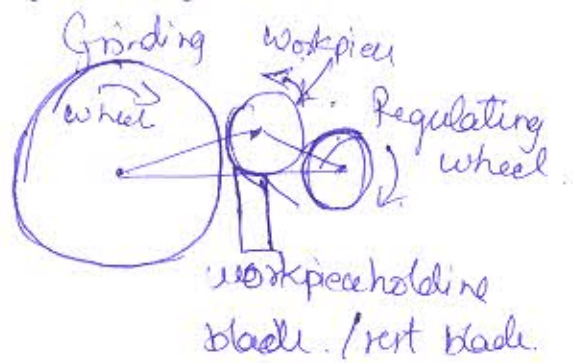 Grinding
wheel
workpiece
Regulating
wheel.
workpieceholding
blade. / rest blade.